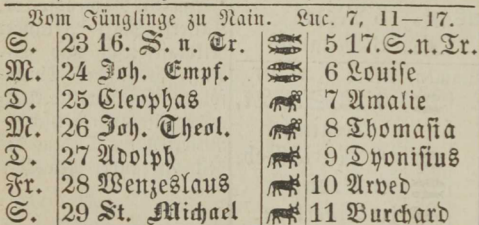 Vom Jünglinge zu Nain. Luc. 7, 11—17.
S. 23 16. S. n. Tr. 5 17. S. n. Tr.
M. 24 Joh. Empf. 6 Louise
D. 25 Cleophas 7 Amalie
M. 26 Joh. Theol. 8 Thomasia
D. 27 Adolph 9 Dyonisius
Fr. 28 Wenzeslaus 10 Arved
S. 29 St. Michael 11 Burchard